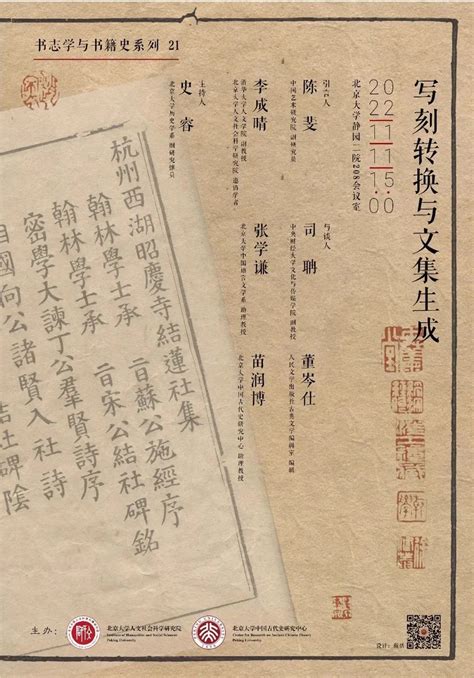 书志学与书籍史系列 21
写刻转换与文集生成
2022.11.11 15:00
北京大学静园二院208会议室
引言人
陈斐
中国艺术研究院 副研究员
李成晴
清华大学人文学院 副教授
北京大学人文社会科学研究院 邀访学者
主持人
史睿
北京大学历史学系 副研究馆员
与谈人
司聃
中央财经大学文化与传媒学院 副教授
张学谦
北京大学中国语言文学系 助理教授
董岑仕
人民文学出版社古典文学编辑室 编辑
苗润博
北京大学中国古代史研究中心 助理教授
杭州西湖昭慶寺結蓮社集
翰林學士承旨蘇公施經序
翰林學士承旨宋公結社碑銘
密學大諫丁公羣賢詩序
自國向公諸賢入社詩
結社碑陰
主办:
北京大学人文社会科学研究院
Institute of Humanities and Social Sciences
Peking University
北京大学中国古代史研究中心
Center for Research on Ancient Chinese History
Peking University